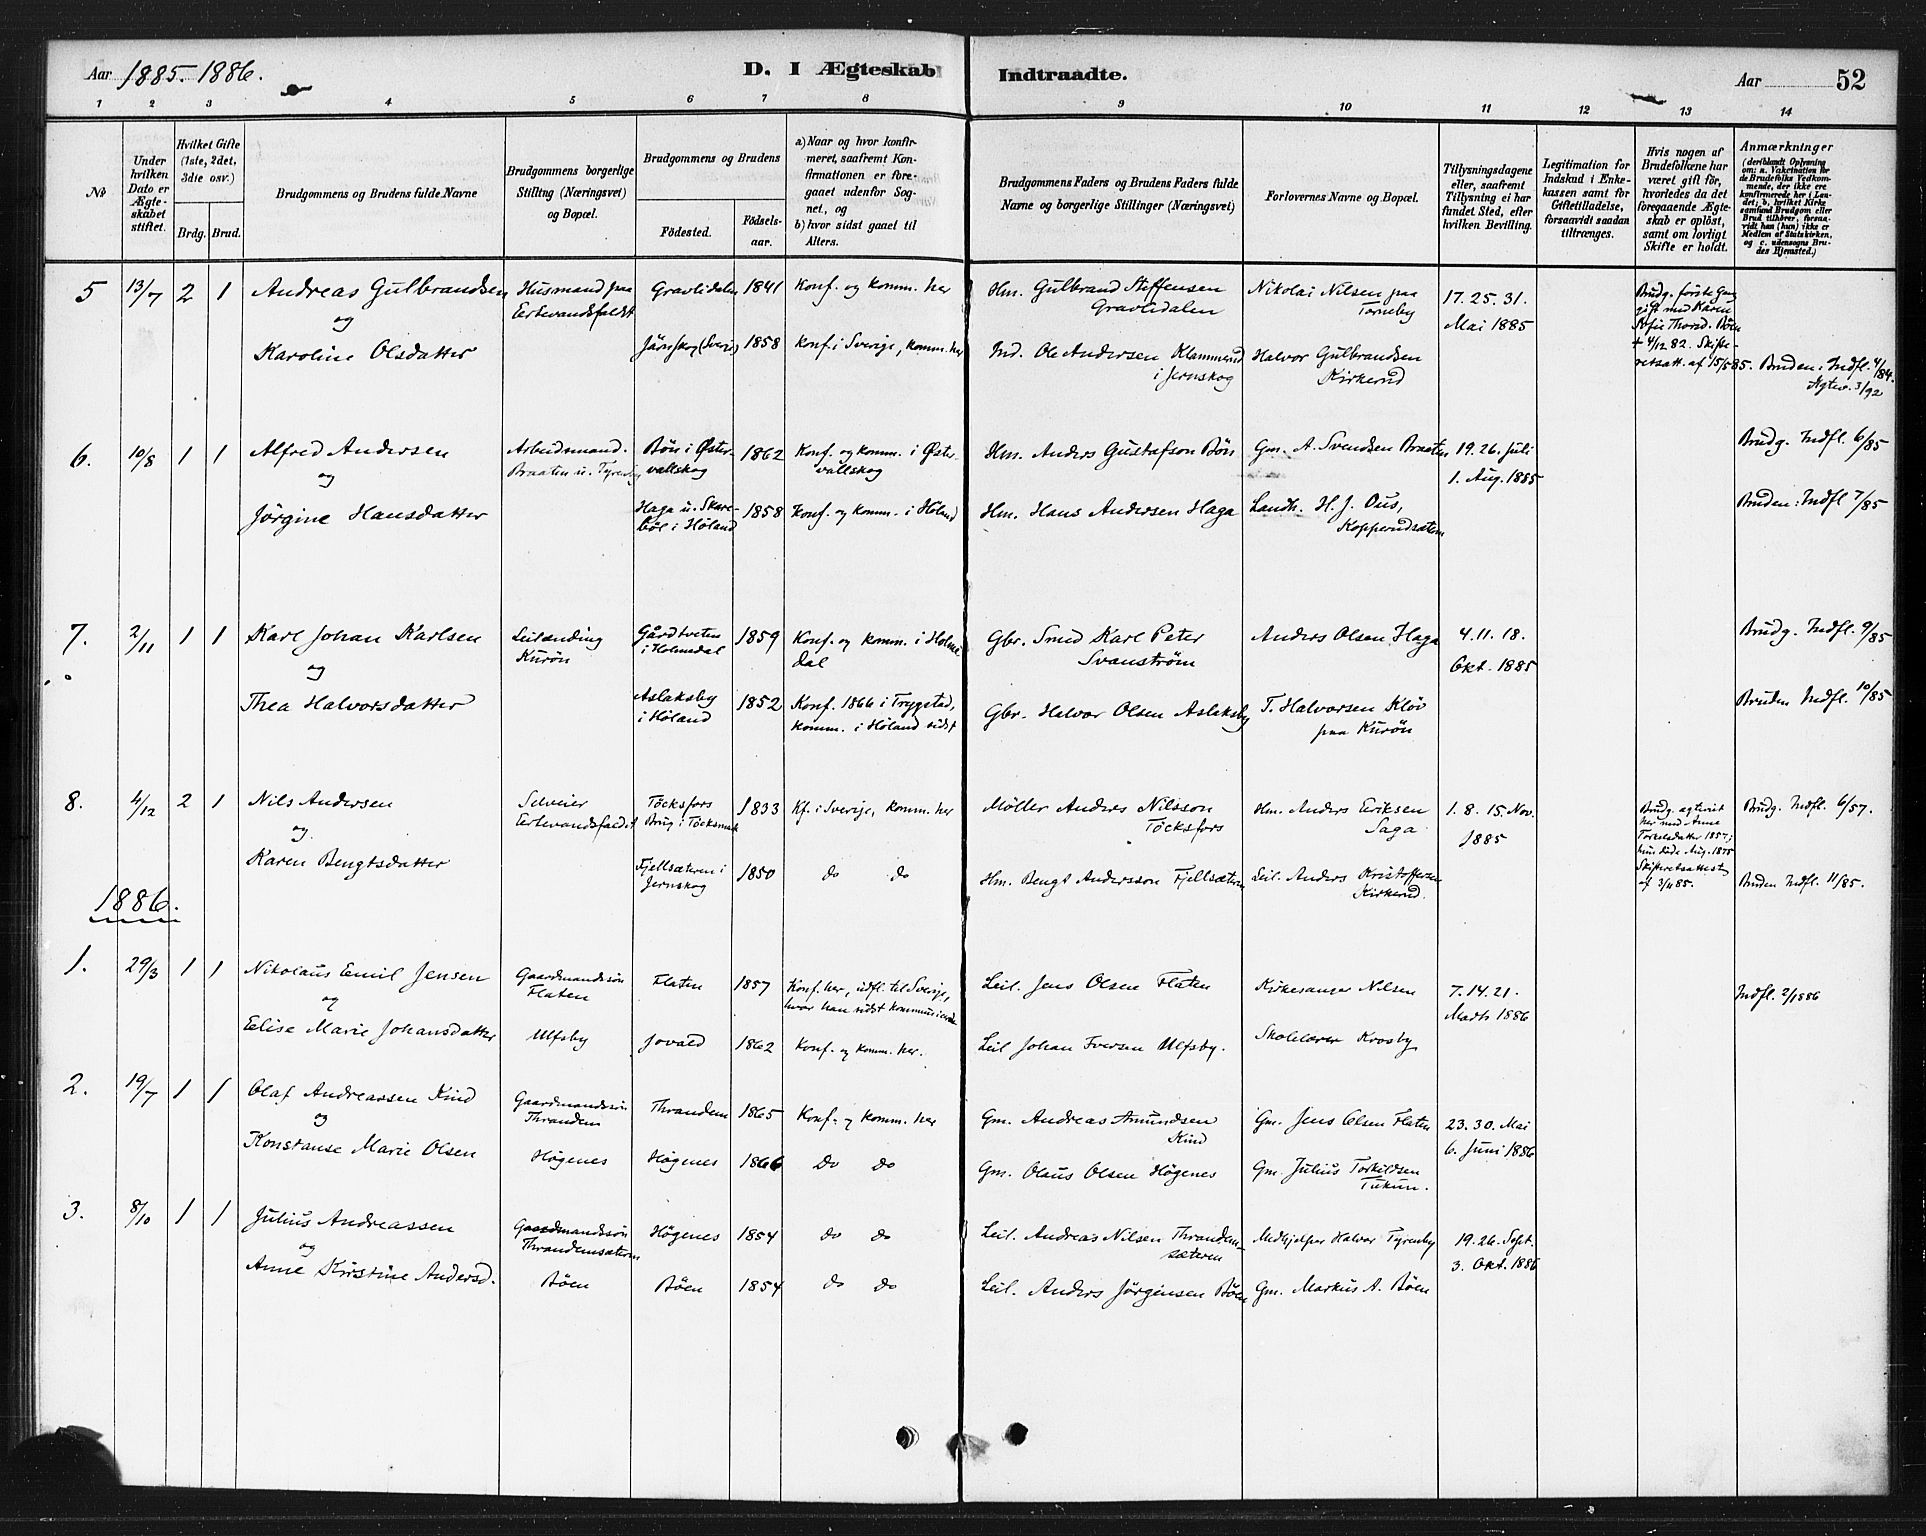 Aar 1885. 1886. D. I Ægteskab Indtraadte. Aar 52
1 2 3 4 5 6 7 8 9 10 11 12 13 14
No
Under hvilken Dato er Ægteskabet stiftet.
Hvilket Gifte (1ste, 2det, 3die osv.)
Brdg. Brud.
Brudgommens og Brudens fulde Navne
Brudgommens borgerlige Stilling (Næringsvei) og Bopæl.
Brudgommens og Brudens
Fødested.
Fødselsaar.
a) Naar og hvor konfirmeret, saafremt Konfirmationen er foregaaet udenfor Sognet, og
b) hvor sidst gaaet til Alters.
Brudgommens Faders og Brudens Faders fulde Navne og borgerlige Stillinger (Næringsvei)
Forlovernes Navne og Bopæl.
Tillysningsdagene eller, saafremt Tillysning ei har fundet Sted, efter hvilken Bevilling.
Legitimation for Indskud i Enkekassen samt for Giftetilladelse, forsaavidt saadan tiltrænges.
Hvis nogen af Brudefolkene har været gift før, hvorledes da det foregaaende Ægteskab er opløst, samt om lovligt Skifte er holdt.
Anmærkninger
(deriblandt Oplysning om: a. Vakcination for de Brudefolks Vedkommende, der ikke ere konfirmerede her i Landet; b. hvilket Kirkesamfund Brudgom eller Brud tilhører, forsaavidt han (hun) ikke er Medlem af Statskirken, og c. udensogns Brudes Hjemsted.)
5 13/7 2 1 Andreas Gulbrandsen
og
Karoline Olsdatter
Husmand paa
Ertevandsfaldet
Gravlidalen 1841 Konf. og komm. her
Järnskog (Sverig) 1858 Konf. i Sverige, komm. her
Hm. Gulbrand Steffensen
Gravlidalen
Ind. Ole Andersen Klammerud
i Jernskog
Nikolai Nilsen paa
Torneby
Halvor Gulbrandsen
Kirkerud
17. 25. 31.
Mai 1885
Brudg. første Gang
gift med Karen
Sofie Thorsd. Böen
+ 4/12 82. Skifte-
retsatt. af 15/5 85.
Bruden: Indfl. 4/84.
Agter. 3/92
6. 10/8 1 1 Alfred Andersen
og
Jørgine Hansdatter
Arbeidsmand.
Braaten u. Tyreby
Bön i Øster-
vallskog
1862 Konf. og komm. i Øster-
vallskog
Haga u. Skare-
böl i Höland
1858 Konf. og komm. i Höland
Hm. Anders Gustafson Bön
Hm. Hans Andersen Haga
Gm. A. Svendsen Braaten
Landh. H. J. Ous,
Kopperudsætern
19. 26. Juli
1. Aug. 1885
Brudg. Indfl. 6/85
Bruden: Indfl. 7/85
7. 2/11 1 1 Karl Johan Karlsen
og
Thea Halvorsdatter
Leilænding
Kurön
Gårdtveten
i Holmedal
1859 Konf. og komm. i Holme
dal
Aslaksby
i Höland
1852 Konf. 1866 i Trygstad,
komm. i Höland sidst
Gbr. Smed Karl Peter
Svanström
Gbr. Halvor Olsen Aslaksby
Anders Olsen Haga
T. Halvorsen Klöv
paa Kurön
4. 11. 18.
Okt. 1885
Brudg. Indfl. 9/85
Bruden Indfl. 10/85
8. 4/12 2 1 Nils Andersen
og
Karen Bengtsdatter
Selveier
Ertevandsfaldet
Töcksfors
Brug i Töcksmark
1833 Kf. i Sverige, komm. her
Fjellsætern i
Jernskog
1850 do do
Møller Anders Nilsson
Töcksfors
Hm. Bengt Andersson Fjellsætern
Hm. Anders Eriksen
Saga
Leil. Anders Kristoffersen
Kirkerud.
1. 8. 15. Nov.
1885
Brudg. agtevict
her med Anne
Torkelsdatter 1857;
hun døde Aug. 1875
Skifteretsattest
af 3/11 85.
Brudg. Indfl. 6/57.
Bruden Indfl. 11/85.
1886.
1. 29/3 1 1 Nikolaus Emil Jensen
og
Eelise Marie Johansdatter
Gaardmandssön
Flaten
Ulfsby
Flaten 1857 Konf. her, udfl. til Sverige,
hvor han sidst kommunicerede
Jovald 1862 Konf. og komm. her.
Leil. Jens Olsen Flaten
Leil Johan Iversen Ulfsby.
Kirkesanger Nilsen
Skolelærer Krosby
7. 14. 21.
Marts 1886
Indfl. 2/1886
2. 19/7 1 1 Olaf Andreassen Kind
og
Konstanse Marie Olsen
Gaardmandssön
Thrandem
Högenes
Thrandem 1865 Konf. og komm. her
Högenes 1866 do do
Gm. Andreas Amundsen
Kind
Gm. Olaus Olsen Högenes
Gm. Jens Olsen Flaten
Gm. Julius Torkildsen
Tukun.
23. 30. Mai
6. Juni 1886
3. 8/10 1 1 Julius Andreassen
og
Anne Kirstine Andersd.
Gaardmandssön
Thrandemsætern
Böen
Högenes 1854 do do
Böen 1854 do do
Leil. Andreas Nilsen Thrandem-
sæteren
Leil. Anders Jörgensen Böen
Medhjelper Halvor Tyreby
Gm. Markus A. Böen
19. 26. Sept.
3. Okt. 1886